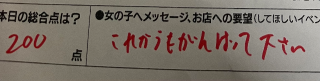 本日の総合点は?
●女の子へメッセージ、お店への要望(してほしいイベン
200点
これからもがんばって下さい